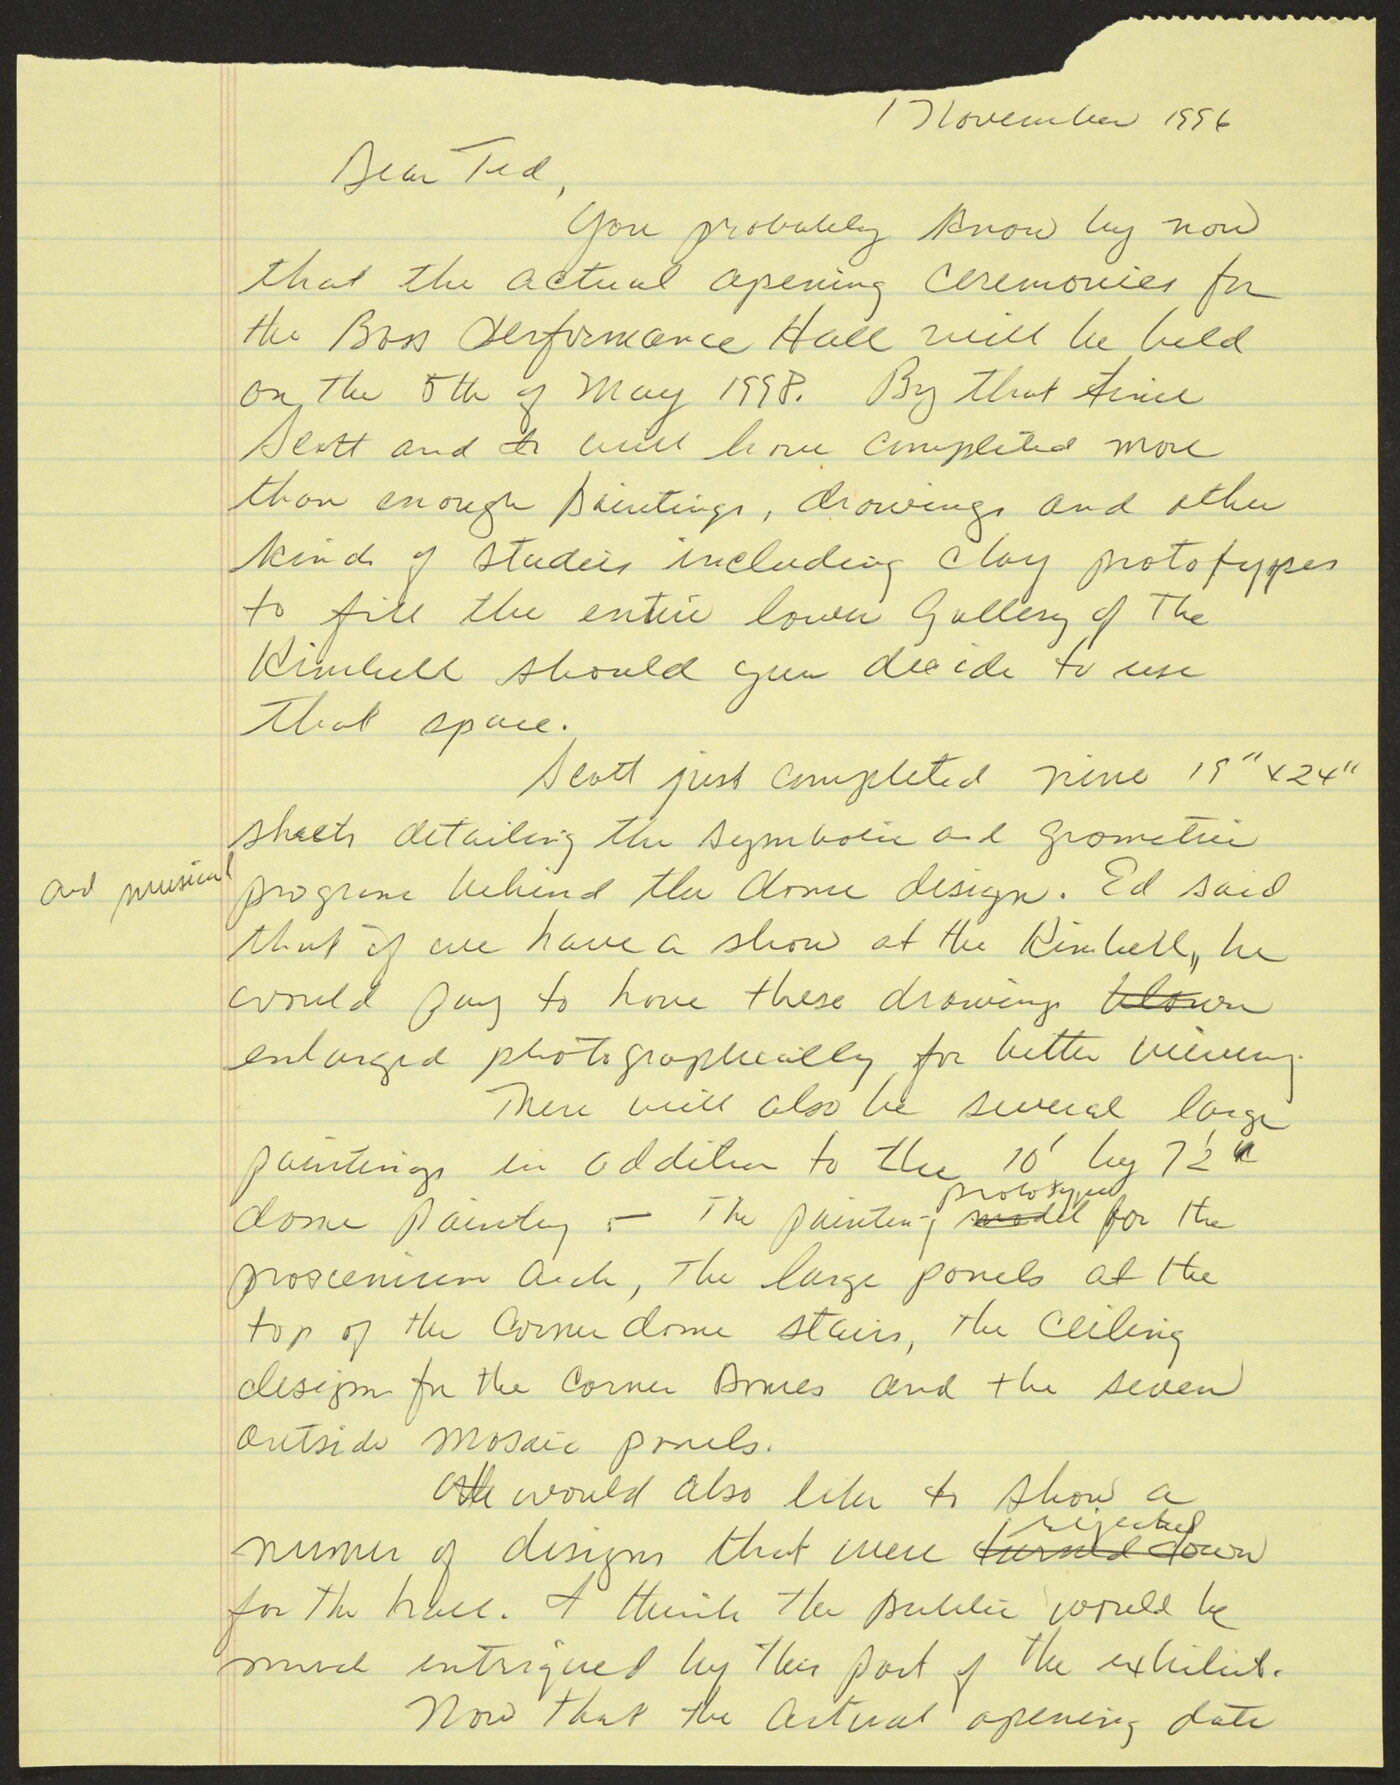 1 November 1996
Dear Ted,
You probably know by now
that the actual opening ceremonies for
the Bass Performance Hall will be held
on the 8th of May 1998. By that time
Scott and I will have completed more
than enough paintings, drawings and other
kinds of studies including clay prototypes
to fill the entire lower Gallery of The
Kimbell should you decide to use
that space.
Scott just completed nine 19" x 24"
sheets detailing the symbolic and geometric
and musical
program behind the dome design. Ed said
that if we have a show at the Kimbell, he
would pay to have these drawings blown
enlarged photographically for better viewing.
There will also be several large
paintings in addition to the 10' by 7½'
dome painting — The painting model prototypes for the
proscenium arch, The large panels at the
top of the corner dome stairs, the ceiling
designs for the corner domes and the seven
outside mosaic panels.
We would also like to show a
numer of designs that were turned down rejected
for the hall. I think the public would be
much intrigued by this part of the exhibit.
Now that the actual opening date